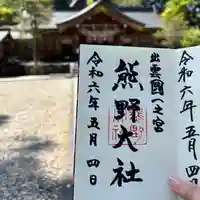 出雲國一之宮
熊野大社
令和六年五月四日
令和六年五月四日